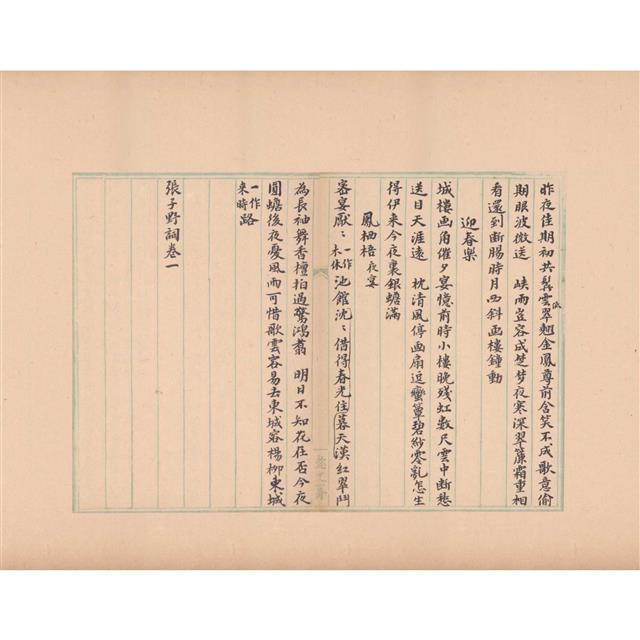 昨夜佳期初共鬢雲低翠翹金鳳尊前含笑不成歌意偷
期眼波微送　峽雨豈容成楚梦夜寒深翠簾霜重相
看還到斷腸時月西斜画樓鐘動
迎春樂
城樓画角催夕宴憶前時小樓晚残虹数尺雲中断愁
送目天涯遠　枕清風停画扇逗蠻簟碧紗零乱怎生
得伊来今夜裏銀蟾滿
鳳栖梧 夜宴
密宴厭：一作木休池館沈：借得春光住暮天漢红翠鬥
為長袖舞香檀拍過驚鴻翥　明日不知花在否今夜
圓蟾後夜憂風雨可惜歌雲容易去東城容楊柳東城
一作來時路
張子野詞卷一